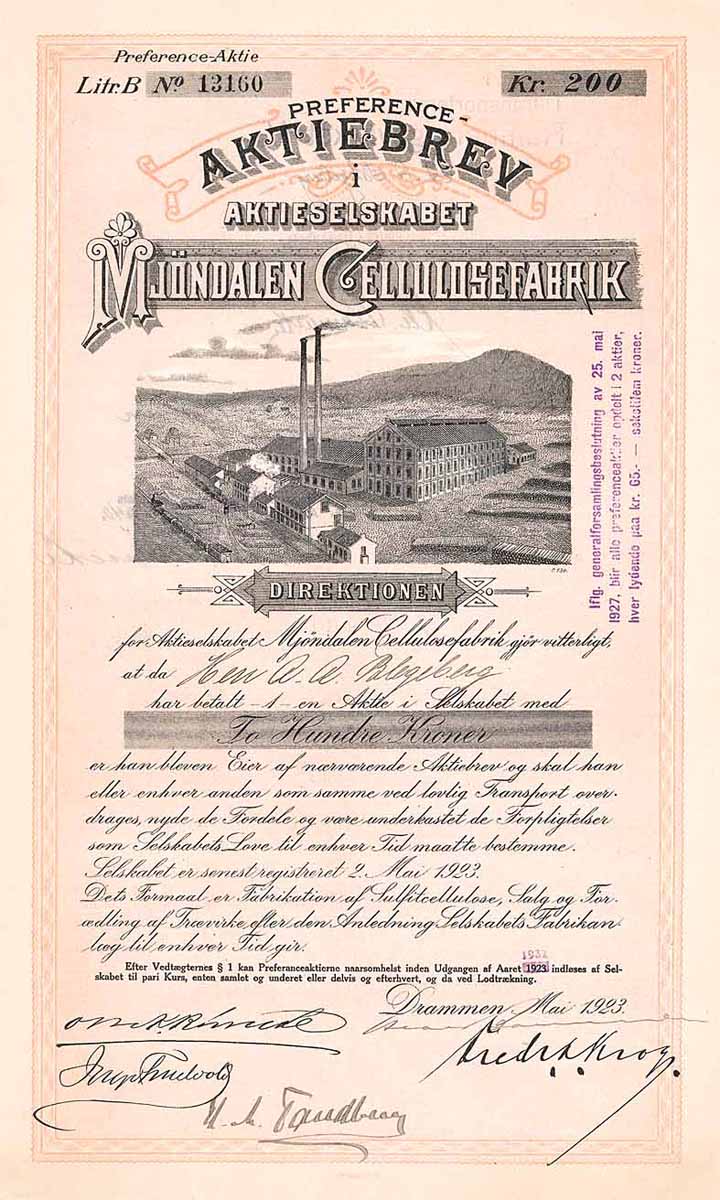 Preference-Aktie
Litr. B No 13160
Kr. 200
PREFERENCE-
AKTIEBREV
i
AKTIESELSKABET
MJÖNDALEN CELLULOSEFABRIK
Iflg. generalforsamlingsbeslutning av 25. mai
1927, blir alle preferenceaktier opdelt i 2 aktier,
hver lydende paa kr. 65.- — sekstifem kroner.
DIREKTIONEN
for Aktieselskabet Mjöndalen Cellulosefabrik gjör vitterligt,
at da Herr A. A.
har betalt -1- en Aktie i Selskabet med
To Hundre Kroner
er han bleven Eier af nærværende Aktiebrev og skal han
eller enhver anden som samme ved lovlig Transport over-
drages, nyde de Fordele og være underkastet de Forpligtelser
som Selskabets Love til enhver Tid maatte bestemme.
Selskabet er senest registreret 2. Mai 1923.
Dets Formaal er Fabrikation af Sulfitcellulose, Salg og For-
ædling af Trævirke efter den Anledning Selskabets Fabrikan-
læg til enhver Tid gir.
1932
Efter Vedtægternes § 1 kan Preferanceaktierne naarsomhelst inden Udgangen af Aaret 1923 indløses af Sel-
skabet til pari Kurs, enten samlet og underet eller delvis og efterhvert, og da ved Lodtrækning.
Drammen, Mai 1923.